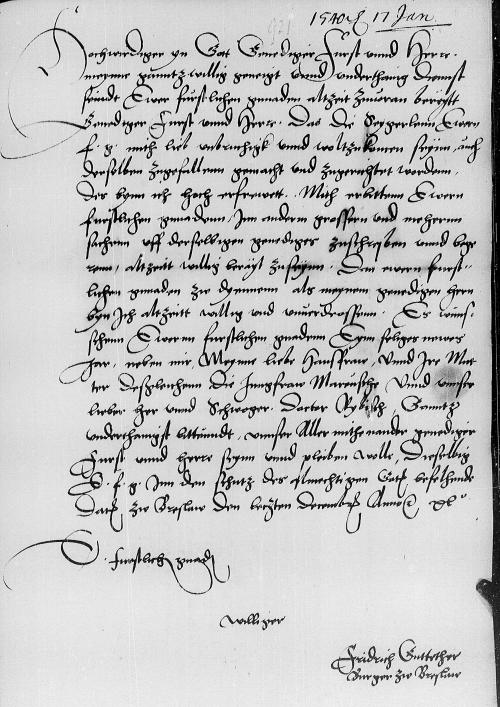 1540 17 Jan
Hochwirdiger yn Got Genediger Furst vnnd Herre.
meyne gantz willig geneigt vnnd vnderthanig dienst
seindt Ewer furstlichen gnaden altzeit zuuran bereytt
Genediger Furst vnnd Herre. Das die Seygerlein Ewern
f. g. mith lieb vnd woltzukomen seyn, auch
derselben zugefallenn gemacht vnd zugerichtet worden.
des bynn ich hoch erfrewett. Mith erbitten Ewern
furstlichen gnadenn, Jm andern grossern vnd mehern
sachenn vff derselbigen genediges zuschreiben vnnd bege
renn, altzeit willig bereyt zuseynn. Den ewern furst-
lichen gnaden zw dynnenn als meynem genedigen hern
byn Jch altzeitt willig vnd vnuerdrossenn. Es wuns-
schenn Ewernn furstlichen gnaden Eynn seliges newes
Jar, neben mir, Meyne liebe Hausfraw, Vnnd Jre Mut
ter desgleichenn die Jungfraw Vnnd vnser
lieber her vnnd Schwoger. Doctor Rybisch, Gantz
vnderthanigst bittundt, vnser Aller mitheinander genediger
Furst vnnd herre seynn vnnd pleiben wolle, Dieselbig
E. f. g. Jnn den schutz des almechtigen Gots befelhende
Datum zw Breslaw den letzten decembris Anno xl
E. furstlich gnad
williger
Fridrich Guttether
Burger zw Breslaw